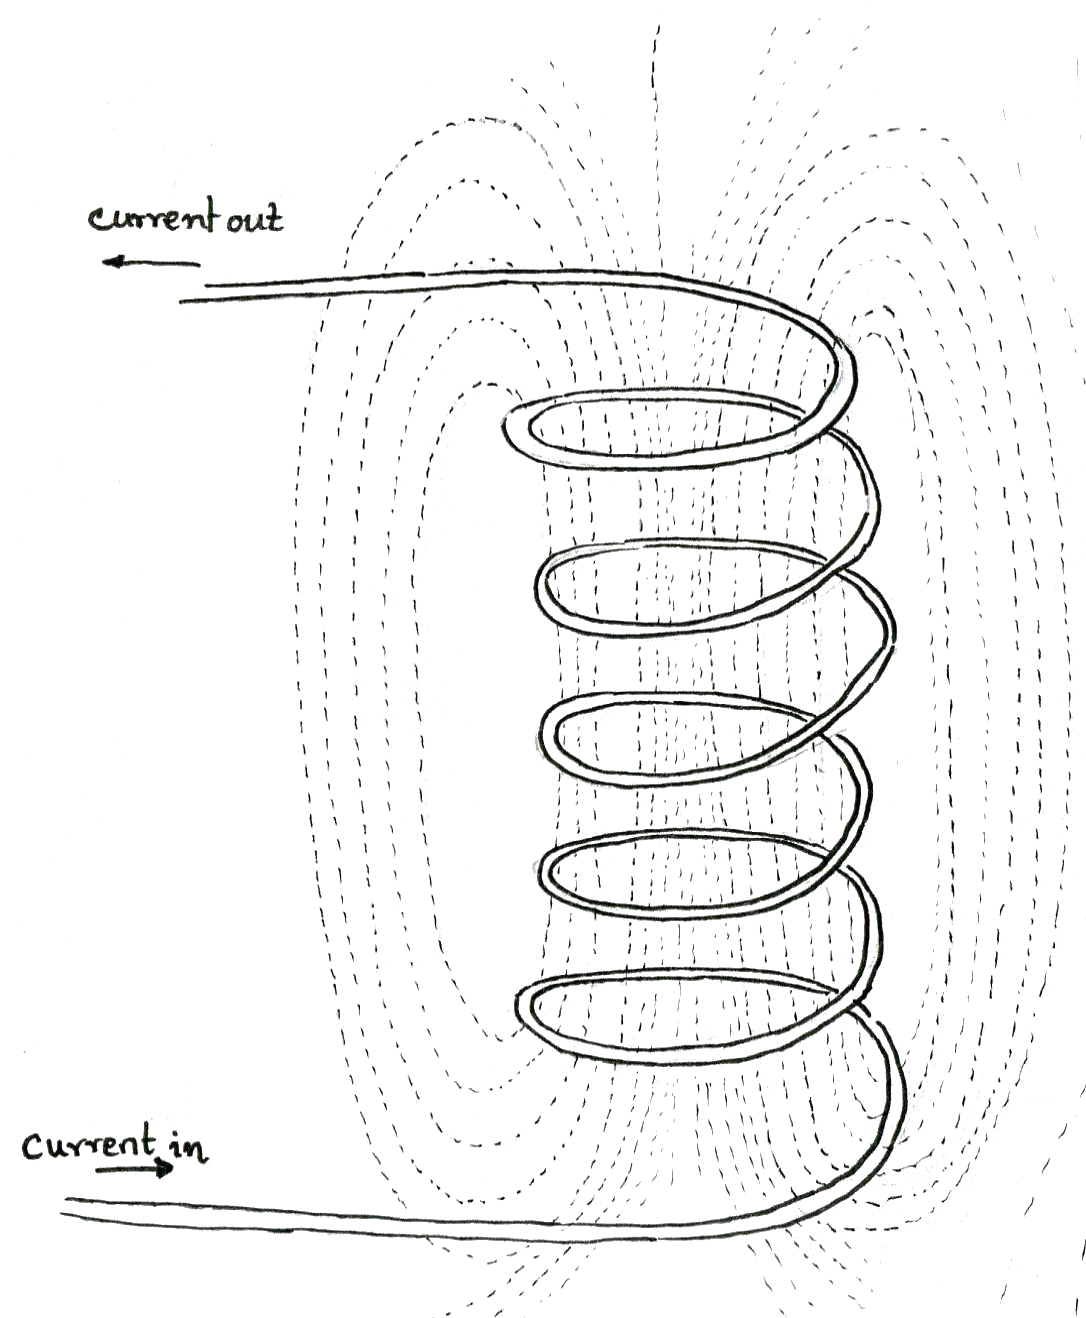 current out
current in